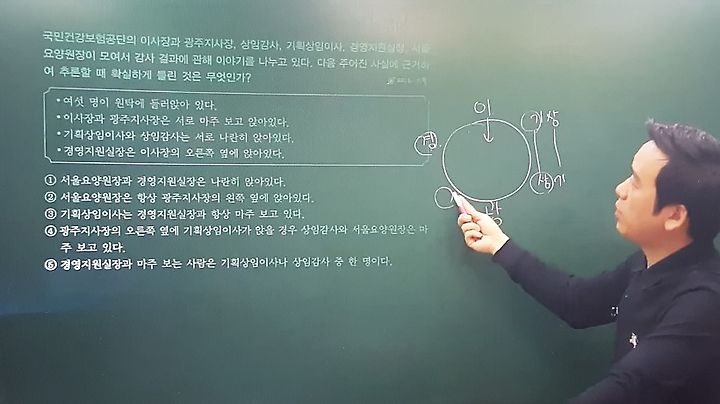 국민건강보험공단의 이사장과 광주지사장, 상임감사, 기획상임이사, 경영지원실장, 서울
요양원장이 모여서 감사 결과에 관해 이야기를 나누고 있다. 다음 주어진 사실에 근거하
여 추론할 때 확실하게 틀린 것은 무엇인가?
• 여섯 명이 원탁에 둘러앉아 있다.
• 이사장과 광주지사장은 서로 마주 보고 앉아있다.
• 기획상임이사와 상임감사는 서로 나란히 앉아있다.
• 경영지원실장은 이사장의 오른쪽 옆에 앉아있다.
① 서울요양원장과 경영지원실장은 나란히 앉아있다.
② 서울요양원장은 항상 광주지사장의 왼쪽 옆에 앉아있다.
③ 기획상임이사는 경영지원실장과 항상 마주 보고 있다.
④ 광주지사장의 오른쪽 옆에 기획상임이사가 앉을 경우 상임감사와 서울요양원장은 마
주 보고 있다.
⑤ 경영지원실장과 마주 보는 사람은 기획상임이사나 상임감사 중 한 명이다.
이
기 상
경
상 기
광